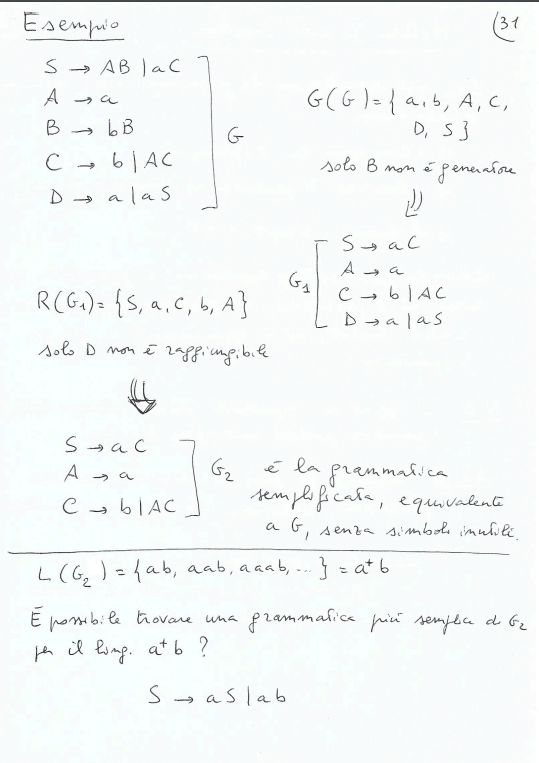 Esempio
(31
S → AB | aC
A → a
B → bB
C → b | AC
D → a | aS
G
G(G) = { a, b, A, C,
D, S }
solo B non è generatore
⇓
G1
S → aC
A → a
C → b | AC
D → a | aS
R(G1) = {S, a, C, b, A}
solo D non è raggiungibile
⇓
S → aC
A → a
C → b | AC
G2
è la grammatica
semplificata, equivalente
a G, senza simboli inutili.
L(G2) = {ab, aab, aaab, ... } = a⁺b
È possibile trovare una grammatica più semplice di G2
per il ling. a⁺b ?
S → aS | ab